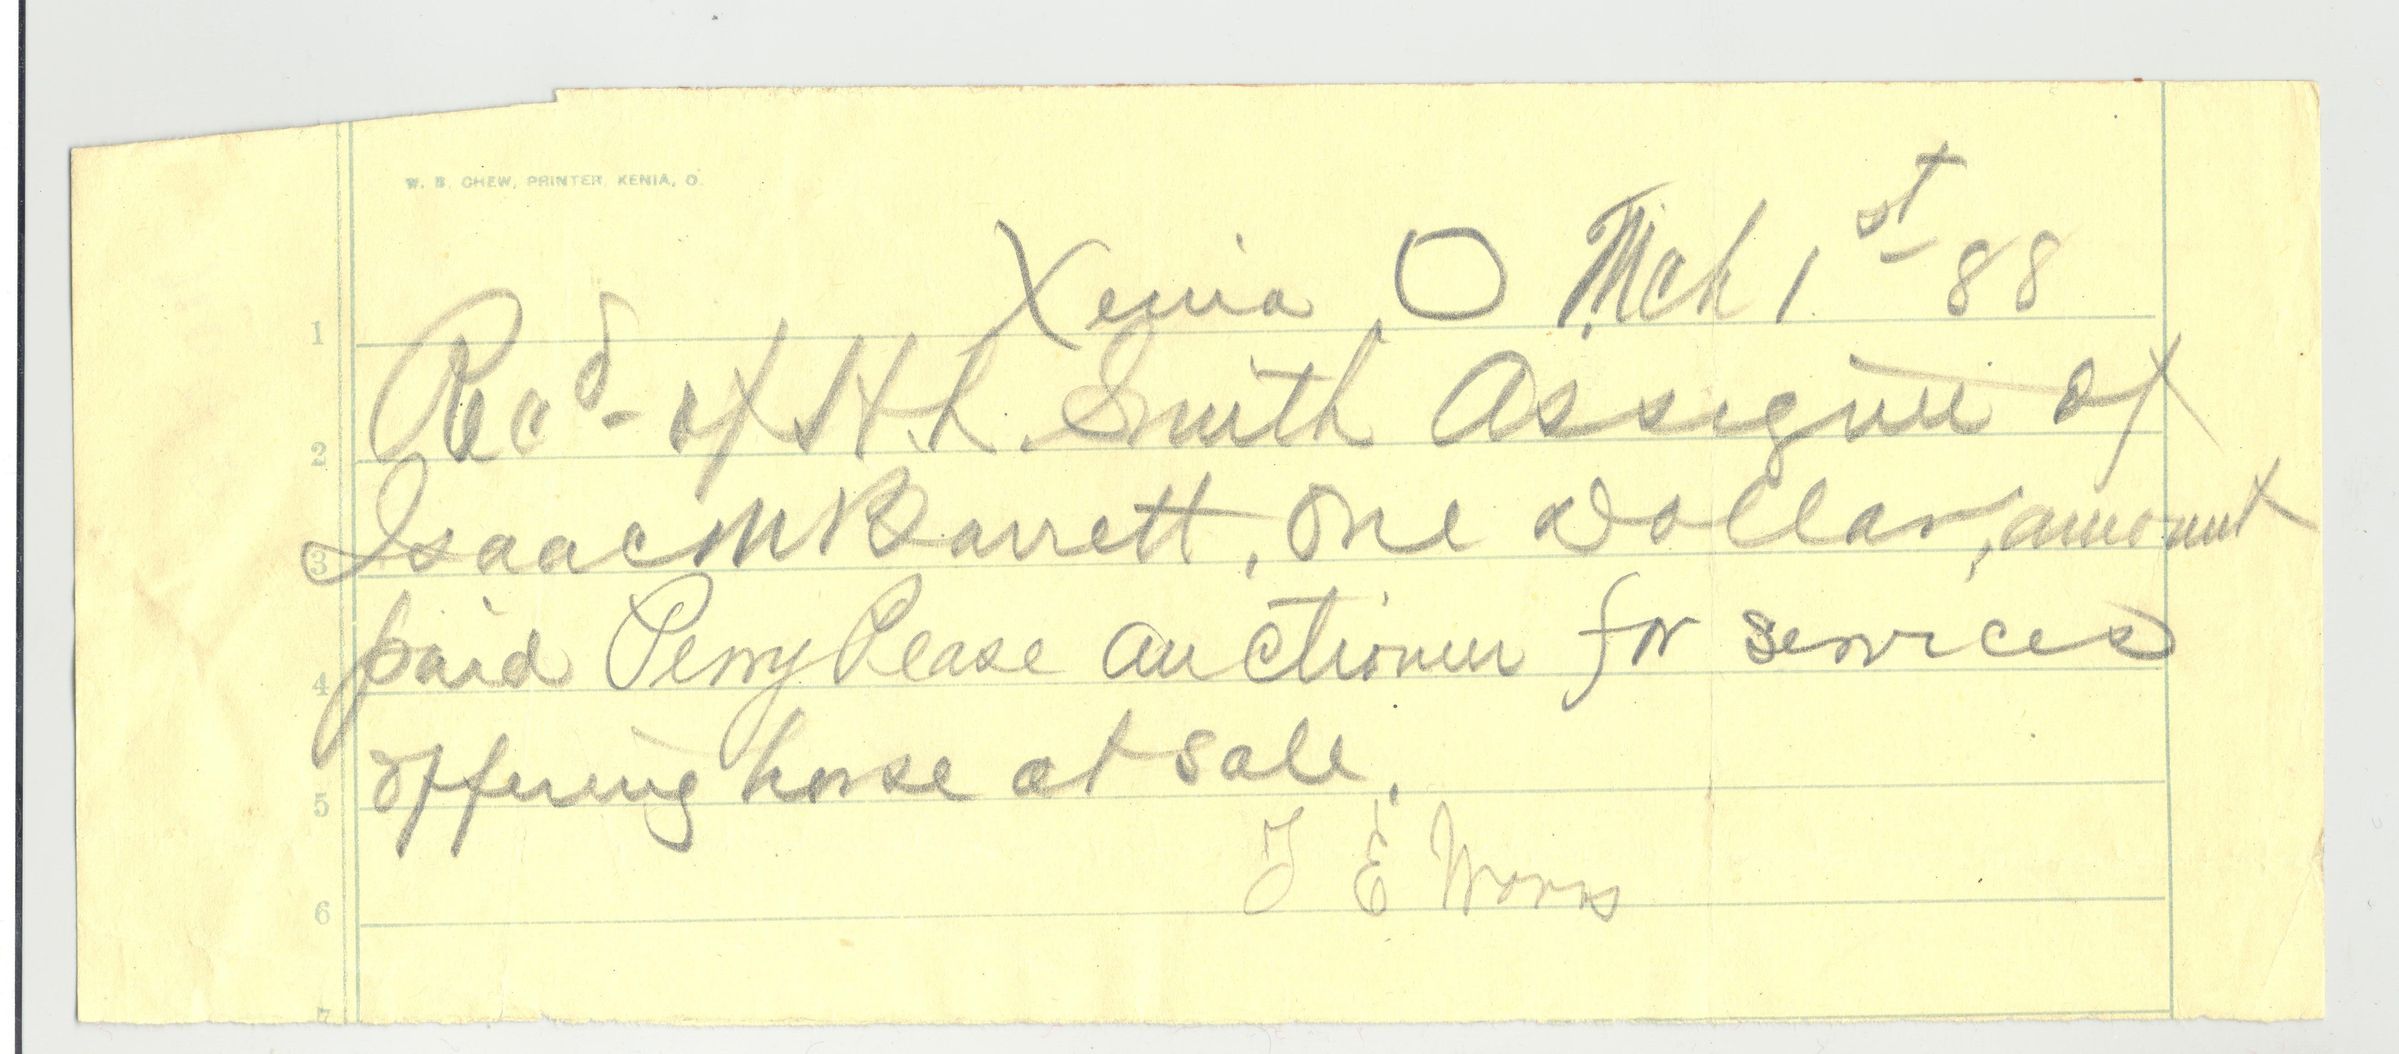 W. B. CHEW, PRINTER, XENIA, O.
Xenia O Mch 1st - 88
1
Recd - of H. L. Smith Assignee of
2
Isaac M Barrett, One Dollar, amount
3
paid Perry Pease auctioneer for services
4
offering horse at sale.
5
T E
6
7